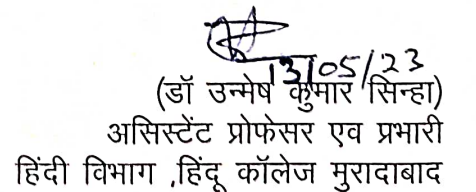 13/05/23
(डॉ उन्मेष कुमार सिन्हा)
असिस्टेंट प्रोफेसर एव प्रभारी
हिंदी विभाग ,हिंदू कॉलेज मुरादाबाद